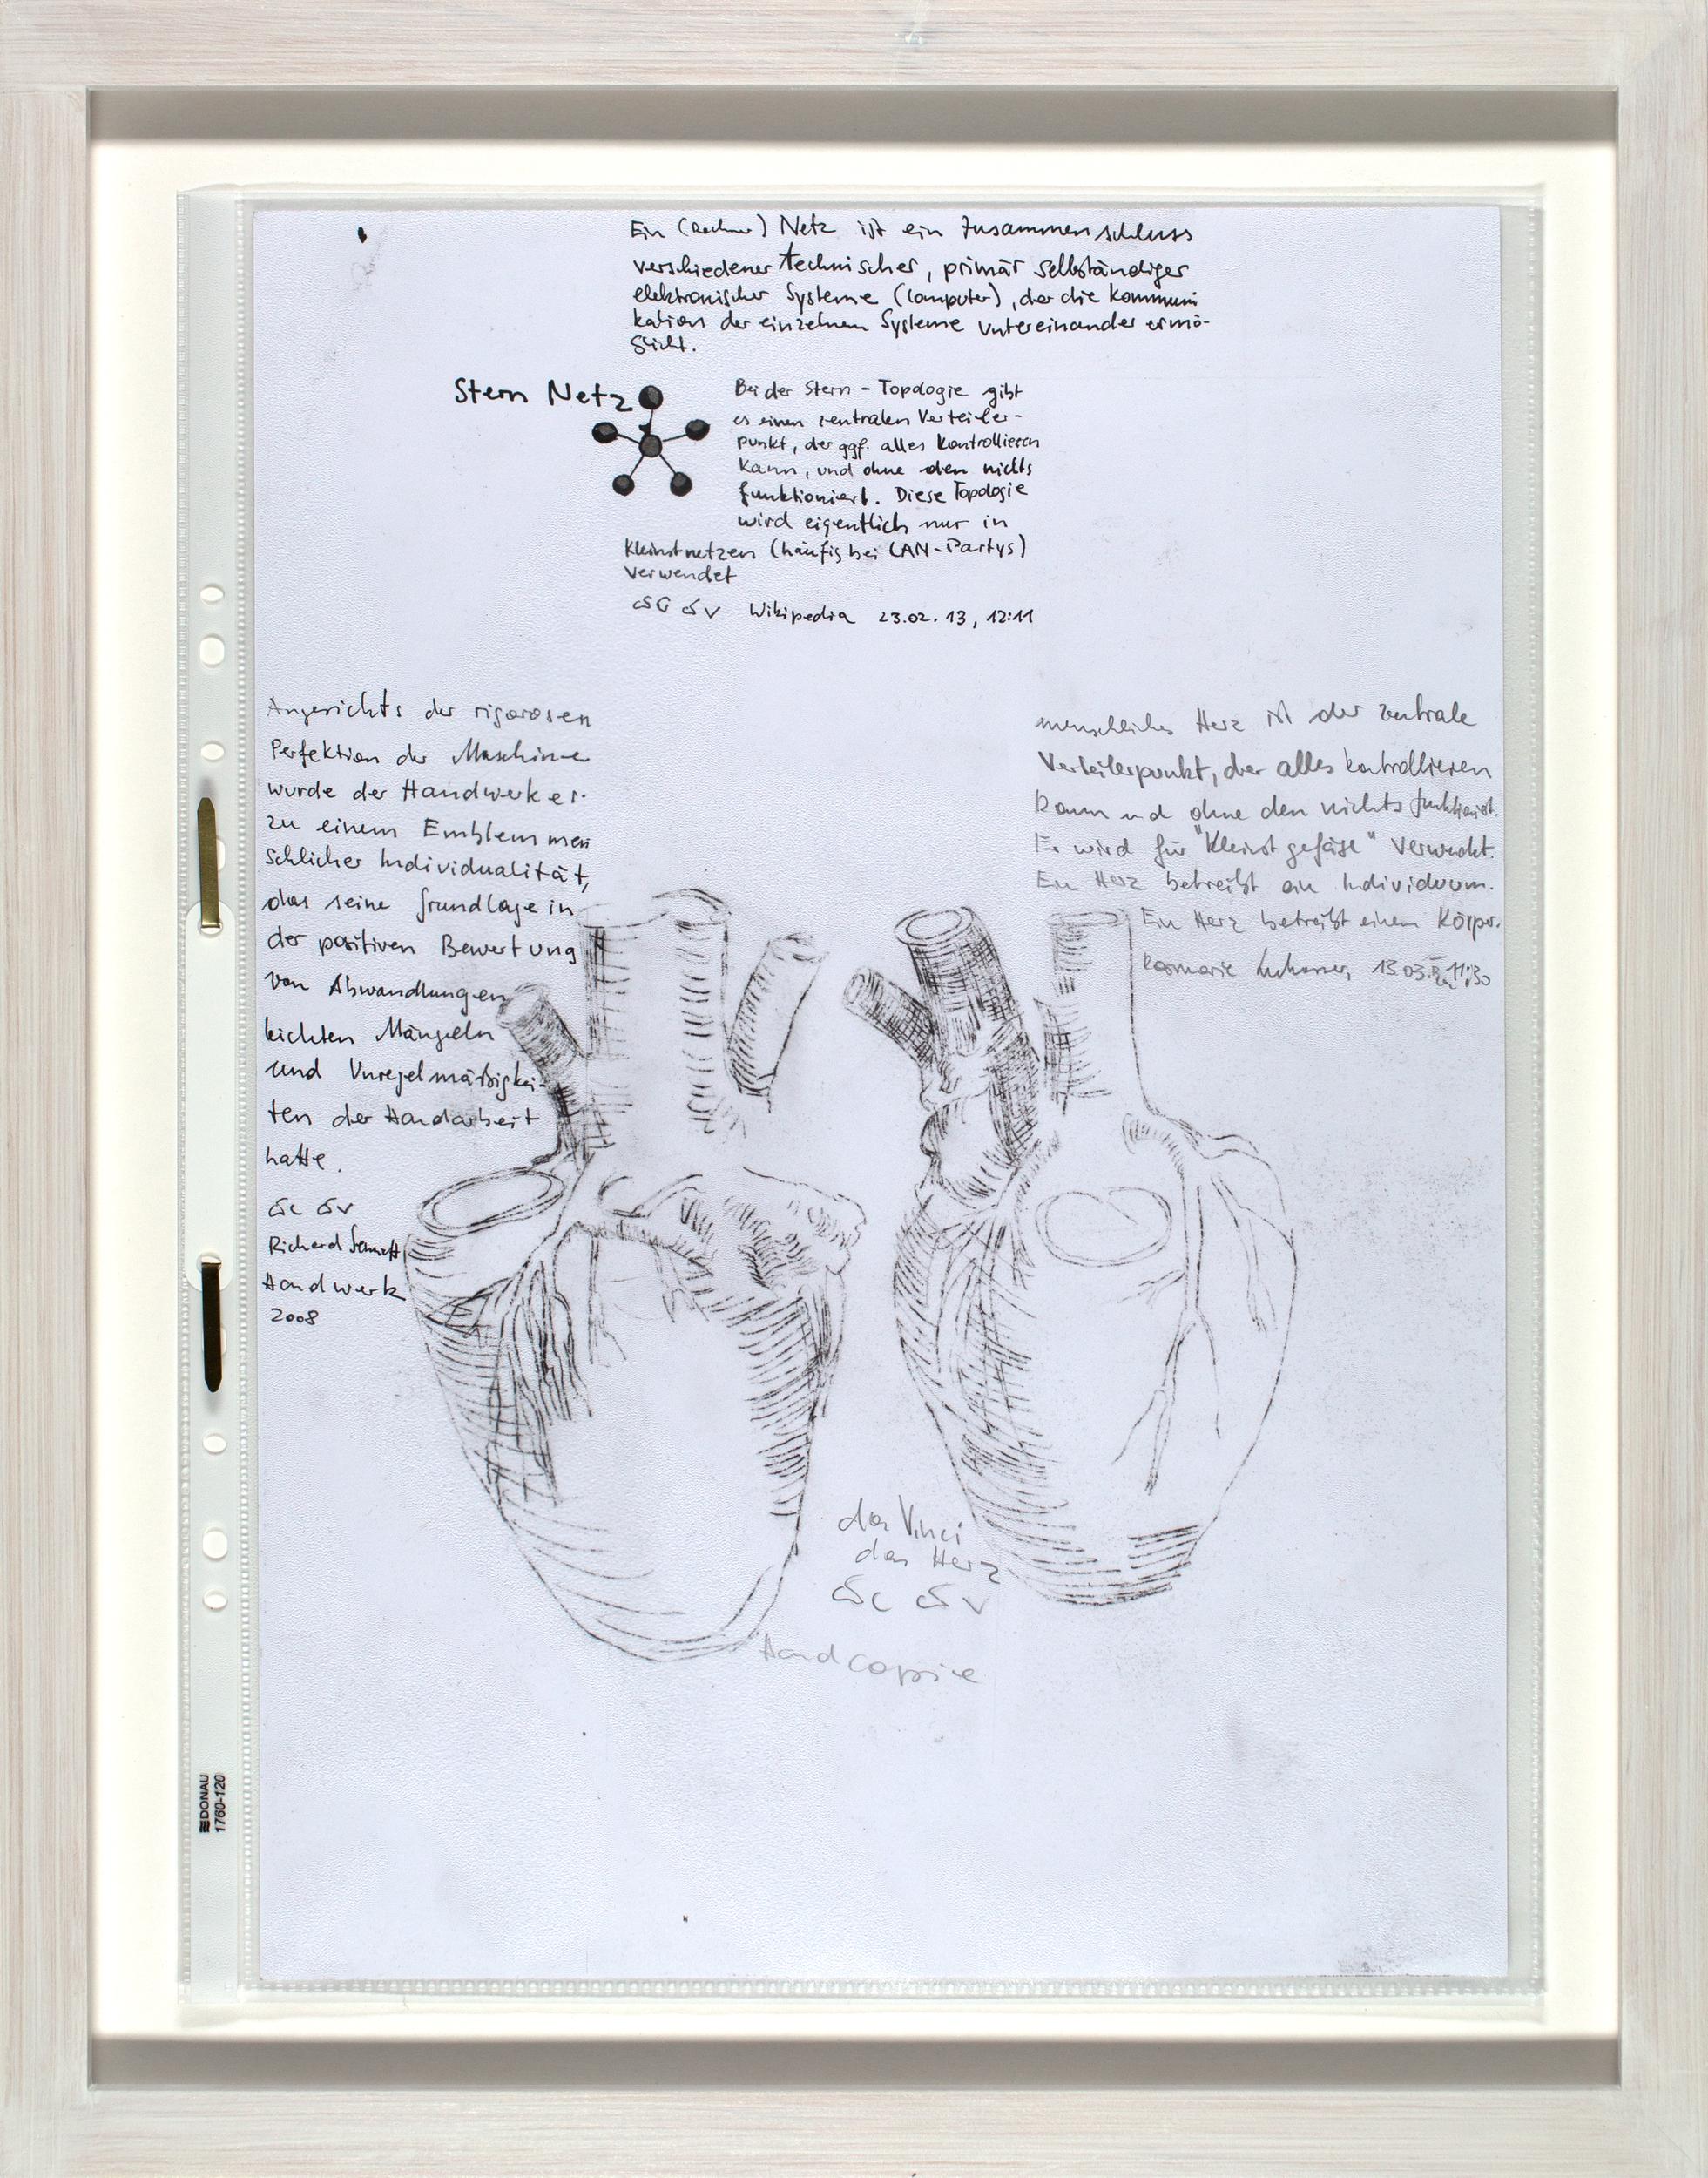 Ein (Rechner) Netz ist ein Zusammenschluss
verschiedener technischer, primär selbständiger
elektronischer Systeme (Computer), der die Kommuni
kation der einzelnen Systeme untereinander ermö-
glicht.
Stern Netz
Bei der Stern-Topologie gibt
es einen zentralen Verteiler-
punkt, der ggf. alles kontrollieren
kann, und ohne den nichts
funktioniert. Diese Topologie
wird eigentlich nur in
Kleinstnetzen (häufig bei LAN-Partys)
verwendet
Wikipedia 23.02.13, 12:11
Angesichts der rigorosen
Perfektion der Maschine
wurde der Handwerker
zu einem Emblem men
schlicher Individualität,
das seine Grundlage in
der positiven Bewertung
von Abwandlungen
leichten Mängeln
und Unregelmäßigkei-
ten der Handarbeit
hatte.
Richard Sennett
Handwerk
2008
menschliches Herz ist der zentrale
Verteilerpunkt, der alles kontrollieren
kann und ohne den nichts funktioniert.
Er wird für "Kleinstgefäße" verwendet.
Ein Herz betreibt ein Individuum.
Ein Herz betreibt einen Körper.
Rosmarie 13.03.
da Vinci
das Herz
Handcopie
DONAU
1760-120